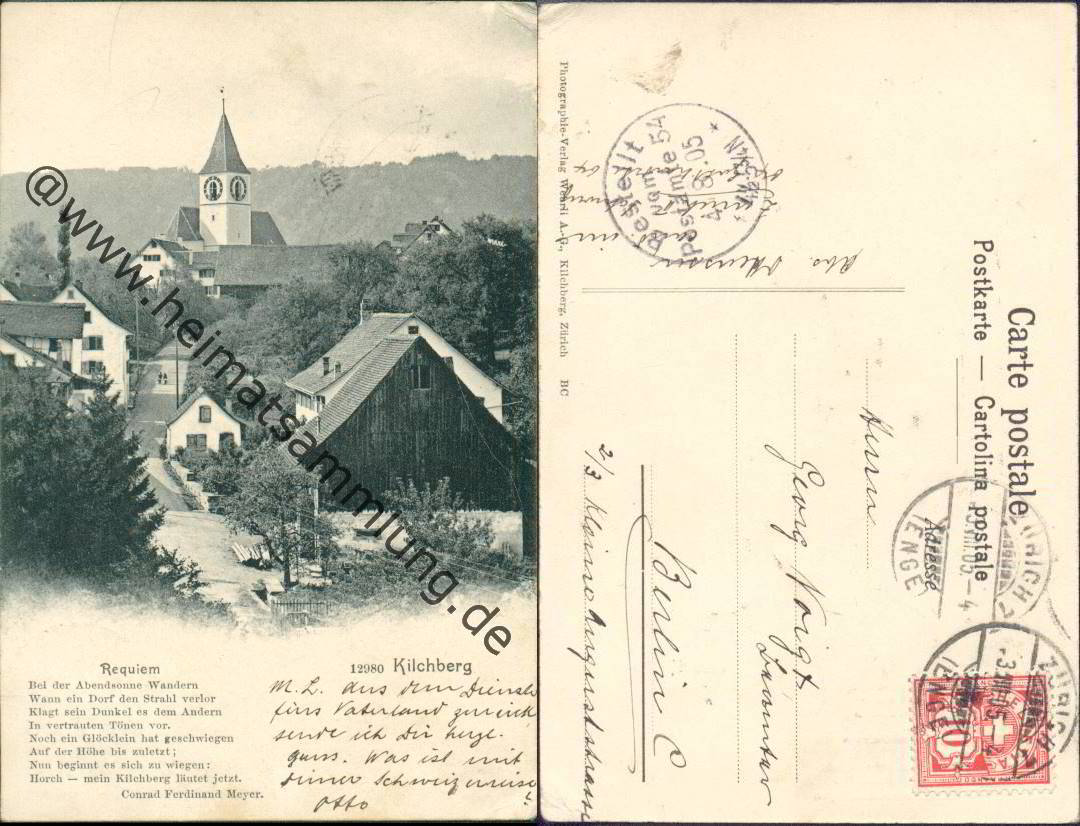 @www.heimatsammlung.de
Requiem
Bei der Abendsonne Wandern
Wann ein Dorf den Strahl verlor
Klagt sein Dunkel es dem Andern
In vertrauten Tönen vor.
Noch ein Glöcklein hat geschwiegen
Auf der Höhe bis zuletzt;
Nun beginnt es sich zu wiegen:
Horch — mein Kilchberg läutet jetzt.
Conrad Ferdinand Meyer.
12980 Kilchberg
M. L. aus dem Dienste
fürs Vaterland zurück
sende ich Dir herzl.
Was ist mit
Deiner Schweizerreise
Otto
Photographie-Verlag Wehrli A.-G., Kilchberg, Zürich BC
Bestellt
vom
Postamte 54
4. 8. 05
N
Abs.
Carte postale
Postkarte — Cartolina postale
Adresse
Herrn
Georg Voigt
Berlin C
2/3
ZÜRICH
ENGE
ZÜRICH
ENGE
10